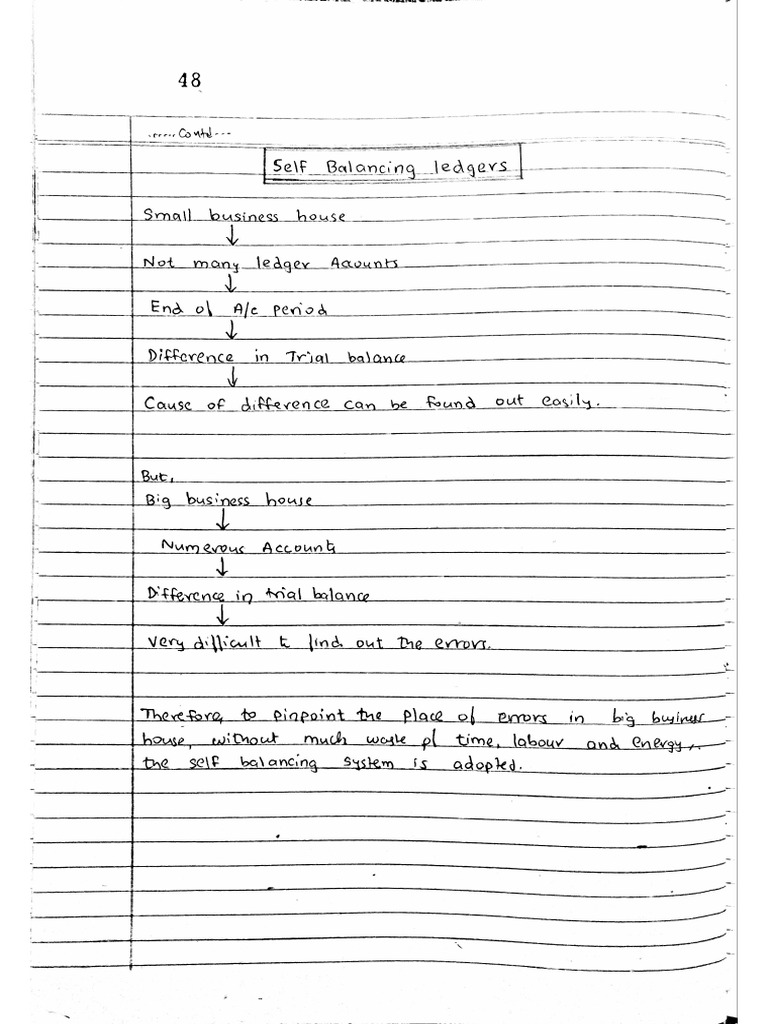 48
......Contd---
Self Balancing ledgers
Small business house
↓
Not many ledger Accounts
↓
End of A/c period
↓
Difference in Trial balance
↓
Cause of difference can be found out easily.
But,
Big business house
↓
Numerous Accounts
↓
Difference in trial balance
↓
Very difficult to find out the errors.
Therefore, to pinpoint the place of errors in big business
house, without much waste of time, labour and energy,
the self balancing system is adopted.